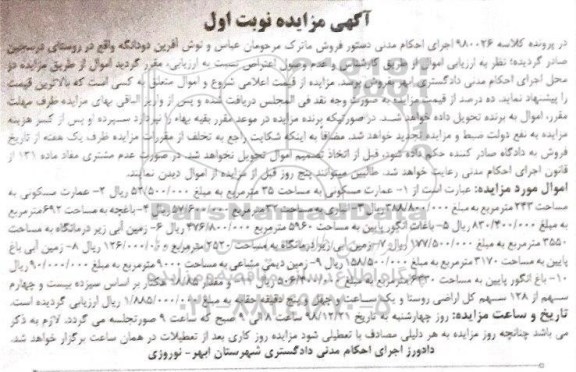 آگهی مزایده نوبت اول
در پرونده کلاسه ۹۸۰۰۲۶ اجرای احکام مدنی دستور فروش ماترک مرحومان عباس و نوش آفرین دودانگه واقع در روستای درسجین
صادر گردیده؛ نظر به ارزیابی اموال از طریق کارشناس و عدم وصول اعتراض نسبت به ارزیابی، مقرر گردید اموال از طریق مزایده در
محل اجرای احکام مدنی دادگستری ابهر بفروش برسد. مزایده از قیمت اعلامی شروع و اموال متعلق به کسی است که بالاترین قیمت
را پیشنهاد نماید. ده درصد از قیمت مزایده به صورت وجه نقد فی المجلس دریافت شده و پس از واریز الباقی بهای مزایده ظرف مهلت
مقرر، اموال به برنده تحویل داده خواهد شد. در صورتیکه برنده مزایده در موعد مقرر بقیه بهاء را نپردازد سپرده او پس از کسر هزینه
مزایده به نفع دولت ضبط و مزایده تجدید خواهد شد. مضافاً به اینکه شکایت راجع به تخلف از مقررات مزایده ظرف یک هفته از تاریخ
فروش به دادگاه صادر کننده حکم داده شود، قبل از اتخاذ تصمیم اموال تحویل نخواهد شد. در صورت عدم مشتری مفاد ماده ۱۳۱ از
قانون اجرای احکام مدنی رعایت خواهد شد. طالبین میتوانند پنج روز قبل از مزایده از اموال دیدن نمایند.
اموال مورد مزایده: عبارت است از ۱- عمارت مسکونی به مساحت ۳۵ مترمربع به مبلغ ۵۲/۵۰۰/۰۰۰ ریال ۲- عمارت مسکونی به
مساحت ۲۴۳ مترمربع به مبلغ ۳۸۸/۸۰۰/۰۰۰ ریال ۳- اناری به مساحت ۳۲ مترمربع ۵۷/۶۰۰/۰۰۰ ریال ۴- باغچه به مساحت ۶۹۲ مترمربع
به مبلغ ۸۳۰/۴۰۰/۰۰۰ ریال ۵- باغات انگور پایین به مساحت ۵۹۶۰ مترمربع ۴۷۶/۸۰۰/۰۰۰ ریال ۶- زمین آبی زیر درمانگاه به مساحت
۳۵۵۰ مترمربع به مبلغ ۱۷۷/۵۰۰/۰۰۰ ریال ۷- زمین آبی زیر درمانگاه به مساحت ۲۵۲۰ مترمربع ۱۲۶/۰۰۰/۰۰۰ ریال ۸- زمین آبی باغ
پایین به مساحت ۳۱۷۰ مترمربع به مبلغ ۱۵۸/۵۰۰/۰۰۰ ریال ۹- زمین دیمی مشاعی به مساحت ۹۰۰۰ مترمربع به مبلغ ۹۰/۰۰۰/۰۰۰ ریال
۱۰- باغ انگور پایین به مساحت ۶۳۳۰ مترمربع به مبلغ ۵۰۶/۴۰۰/۰۰۰ ریال ۱۱- و مقدار ۱۸/۸۵ هکتار بر اساس سیزده بیست و چهارم
سهم از ۱۲۸ سهم کل اراضی روستا و یک ساعت و چهل و پنج دقیقه حقابه به مبلغ ۱/۸۸۵/۰۰۰/۰۰۰ ریال ارزیابی گردیده است.
تاریخ و ساعت مزایده: روز چهارشنبه به تاریخ ۹۸/۱۲/۲۱ ساعت ۸ الی ۹ صبح که ساعت ۹ صورتجلسه می گردد. لازم به ذکر
می باشد چنانچه روز مزایده به هر دلیلی مصادف با تعطیلی شود مزایده روز کاری بعد از تعطیلات در همان ساعت برگزار خواهد شد.
دادورز اجرای احکام مدنی دادگستری شهرستان ابهر- نوروزی
ParsNamadData